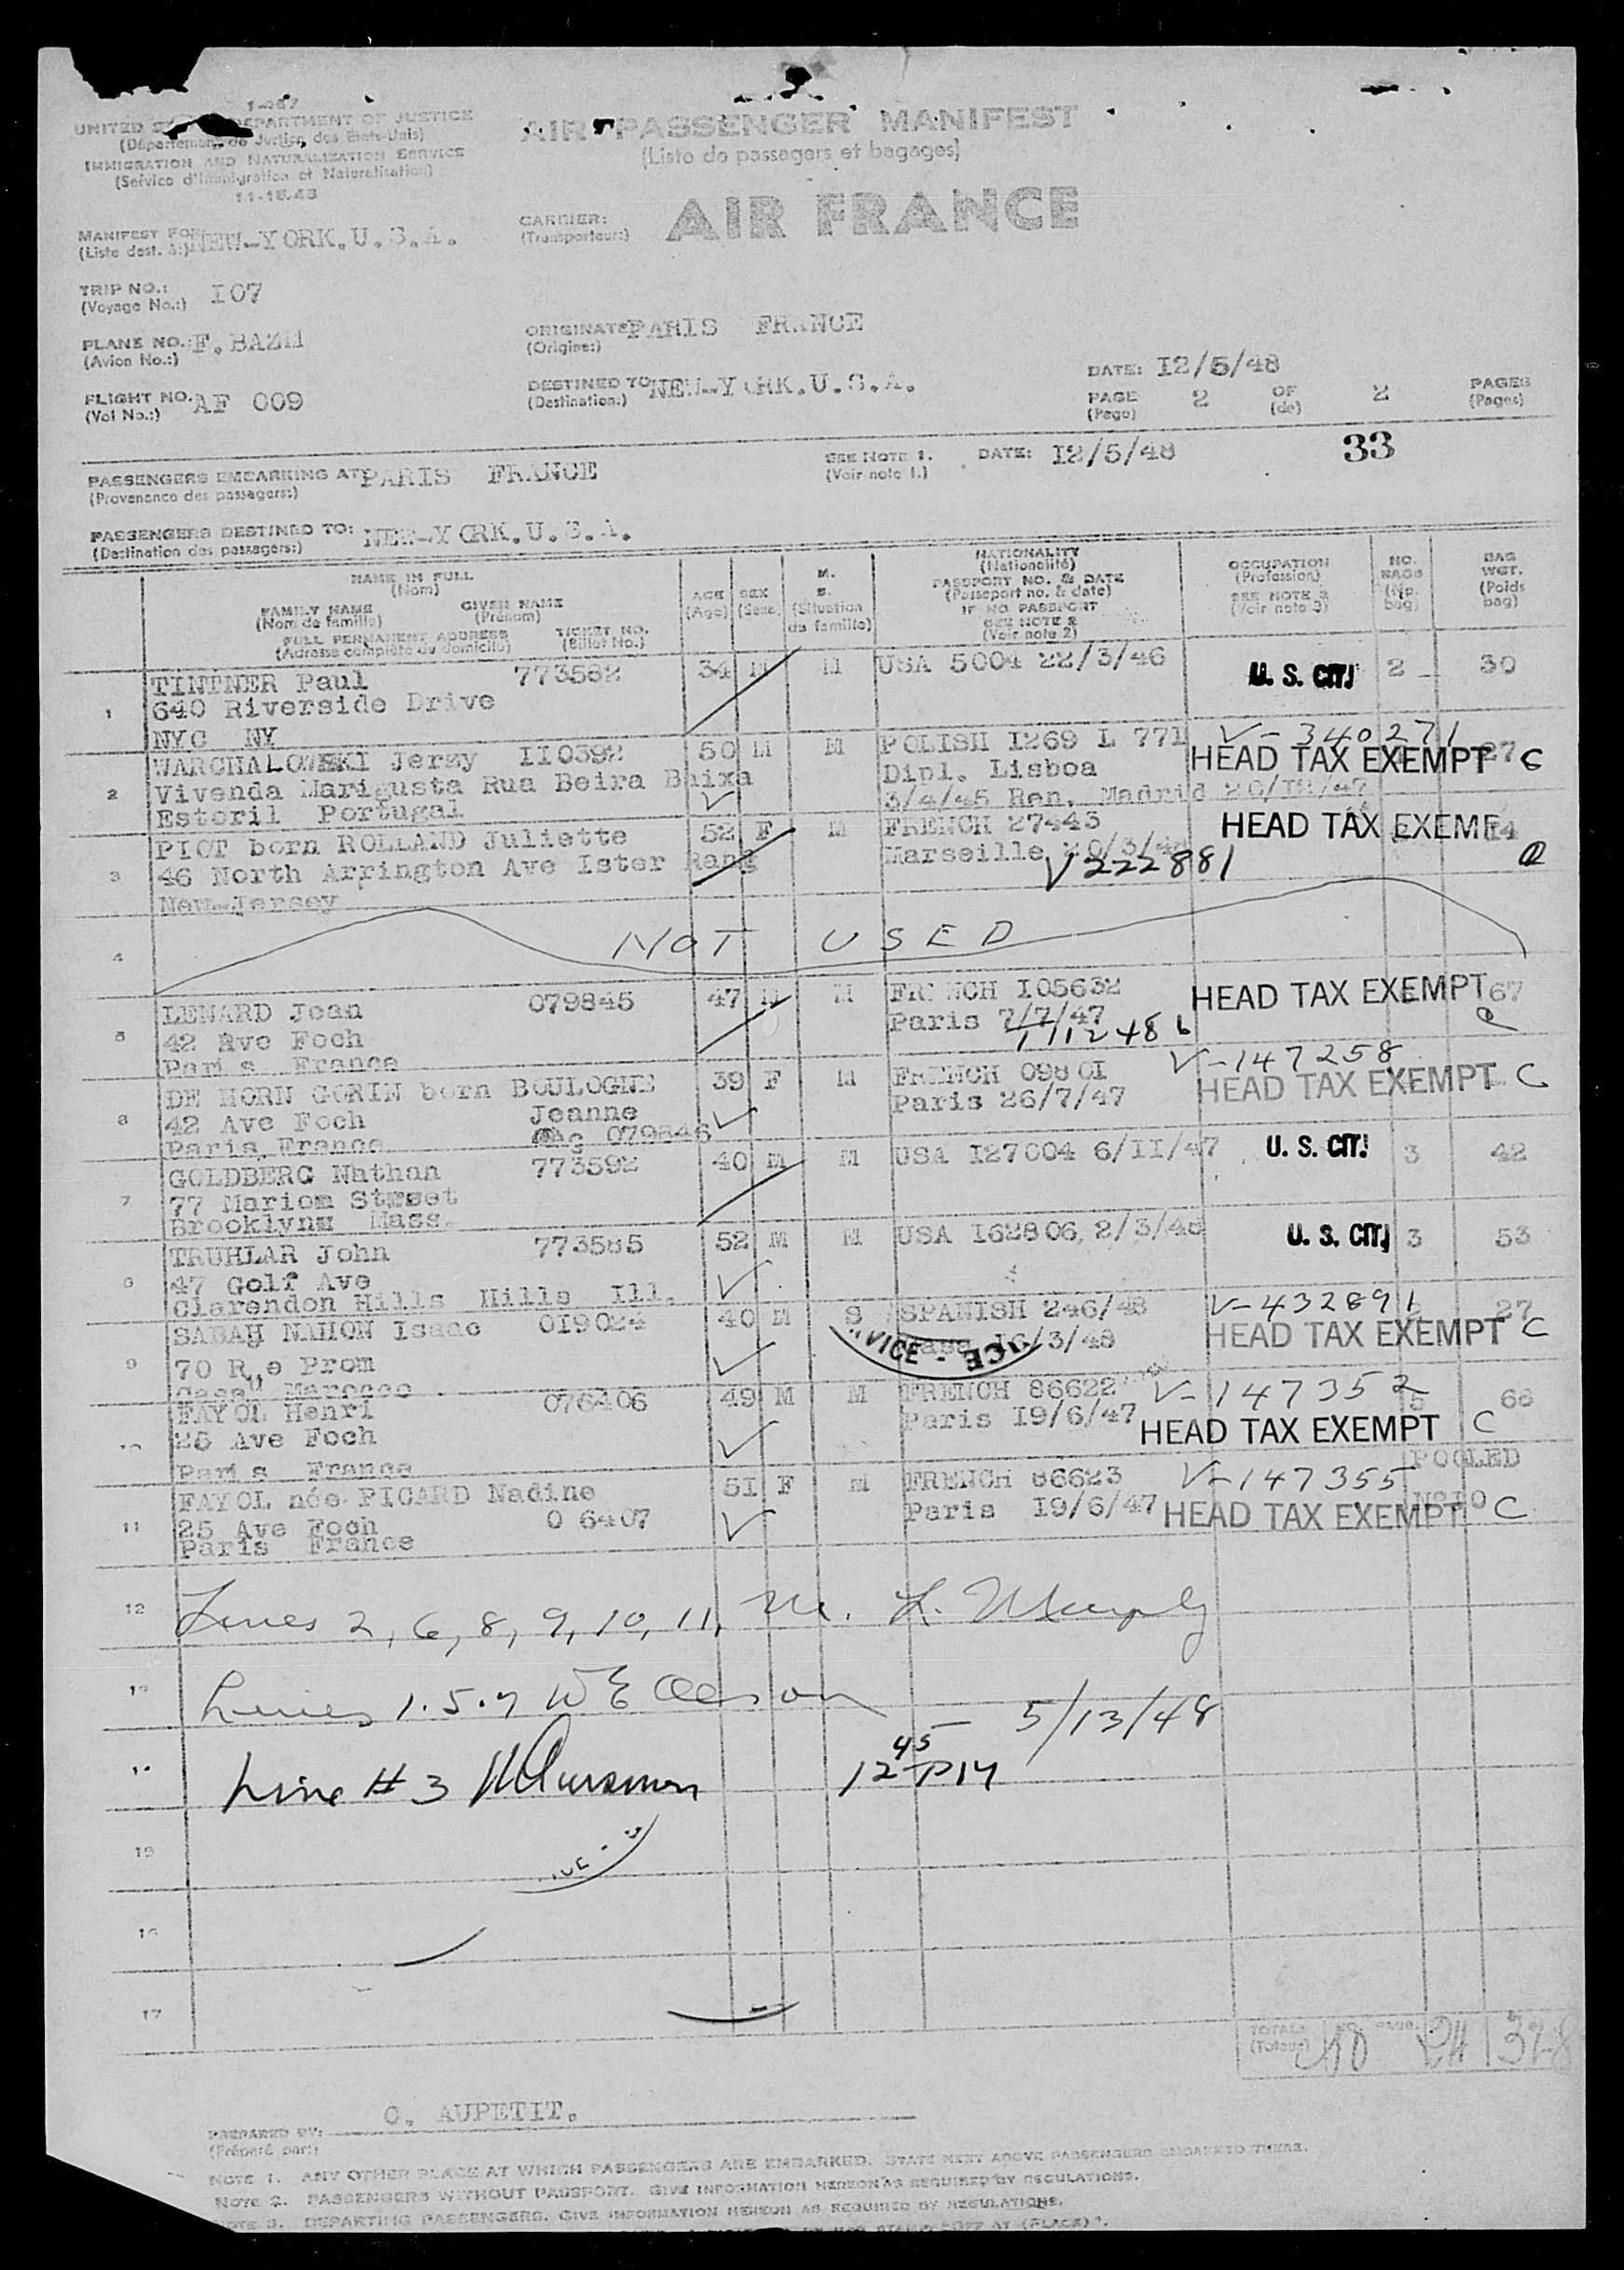 1-467
UNITED DEPARTMENT OF JUSTICE
(Département de Justice des Etats-Unis)
IMMIGRATION AND NATURALIZATION SERVICE
(Service d'Immigration et Naturalisation)
11-15-43
AIR PASSENGER MANIFEST
(Liste de passagers et bagages)
CARRIER: AIR FRANCE
(Transporteur:)
MANIFEST FOR NEW-YORK.U.S.A.
(Liste dest. à:)
TRIP NO.: I07
(Voyage No.:)
PLANE NO.: F.BAZM
(Avion No.:)
ORIGINATE PARIS FRANCE
(Origine:)
FLIGHT NO. AF 009
(Vol No.:)
DESTINED TO NEW-YORK.U.S.A.
(Destination:)
DATE: I2/5/48
PAGE 2 OF 2 PAGES
(Page) (de) (Pages)
PASSENGERS EMBARKING AT PARIS FRANCE
(Provenance des passagers:)
SEE NOTE 1. DATE: I2/5/48 33
(Voir note 1.)
PASSENGERS DESTINED TO: NEW-YORK.U.S.A.
(Destination des passagers:)
NAME IN FULL
(Nom)
FAMILY NAME GIVEN NAME
(Nom de famille) (Prénom)
FULL PERMANENT ADDRESS TICKET NO.
(Adresse complète du domicile) (Billet No.)
AGE
(Age)
SEX
(Sexe)
M.
S.
(Situation
de famille)
NATIONALITY
(Nationalité)
PASSPORT NO. & DATE
(Passeport no. & date)
IF NO PASSPORT
SEE NOTE 2
(Voir note 2)
OCCUPATION
(Profession)
SEE NOTE 3
(Voir note 3)
NO.
BAGS
(No.
bag)
BAG
WGT.
(Poids
bag)
1 TINTNER Paul 773582 34 M M USA 5004 22/3/46 U. S. CIT. 2 30
640 Riverside Drive
NYC NY
2 WARCHALOWSKI Jerzy II0392 50 M M POLISH I269 L 771 V-340271 27
Vivenda Marigusta Rua Beira Baixa Dipl. Lisboa HEAD TAX EXEMPT C
Estoril Portugal 3/4/45 Ren. Madrid 20/12/47
3 PIOT born ROLLAND Juliette 52 F M FRENCH 27443 HEAD TAX EXEMP 14
46 North Arrington Ave Ister Rang Marseille V222881
New-Jersey
4 NOT USED
5 LENARD Jean 079845 47 M M FRENCH I05632 HEAD TAX EXEMPT 67
42 Ave Foch Paris 7/7/47
Paris France
6 DE HORN GORIN born BOULOGNE 39 F M FRENCH 098 0I V-147258
42 Ave Foch Jeanne Paris 26/7/47 HEAD TAX EXEMPT C
Paris France 079846
7 GOLDBERG Nathan 773592 40 M M USA I27004 6/II/47 U. S. CIT. 3 42
77 Marion Street
Brooklynm Mass.
8 TRUHLAR John 773585 52 M M USA I62806, 2/3/48 U. S. CIT. 3 53
47 Golf Ave
Clarendon Hills Hills Ill.
9 SABAH NAHON Isaac 0I9024 40 M S SPANISH 246/48 V-432891 27
70 Rue Prom Casa I6/3/48 HEAD TAX EXEMPT C
Casa Marocco
VICE
10 FAYOL Henri 076406 49 M M FRENCH 86622 V-147352 5 66
25 Ave Foch Paris I9/6/47 HEAD TAX EXEMPT C
Paris France
11 FAYOL née PICARD Nadine 5I F M FRENCH 86623 V-147355 POOLED
25 Ave Foch 0 6407 Paris I9/6/47 HEAD TAX EXEMPT N°10 C
Paris France
12 Lines 2, 6, 8, 9, 10, 11, M. L. Murphy
13 Lines 1.5.7 5/13/48
14 Line # 3 12 45 PM
15
16
17
TOTALS 10 24 328
(Totaux)
PREPARED BY: O. AUPETIT.
(Préparé par:)
NOTE 1. ANY OTHER PLACE AT WHICH PASSENGERS ARE EMBARKED. STATE NEXT ABOVE PASSENGERS EMBARKED THERE.
NOTE 2. PASSENGERS WITHOUT PASSPORT. GIVE INFORMATION HEREON AS REQUIRED BY REGULATIONS.
NOTE 3. DEPARTING PASSENGERS. GIVE INFORMATION HEREON AS REQUIRED BY REGULATIONS.